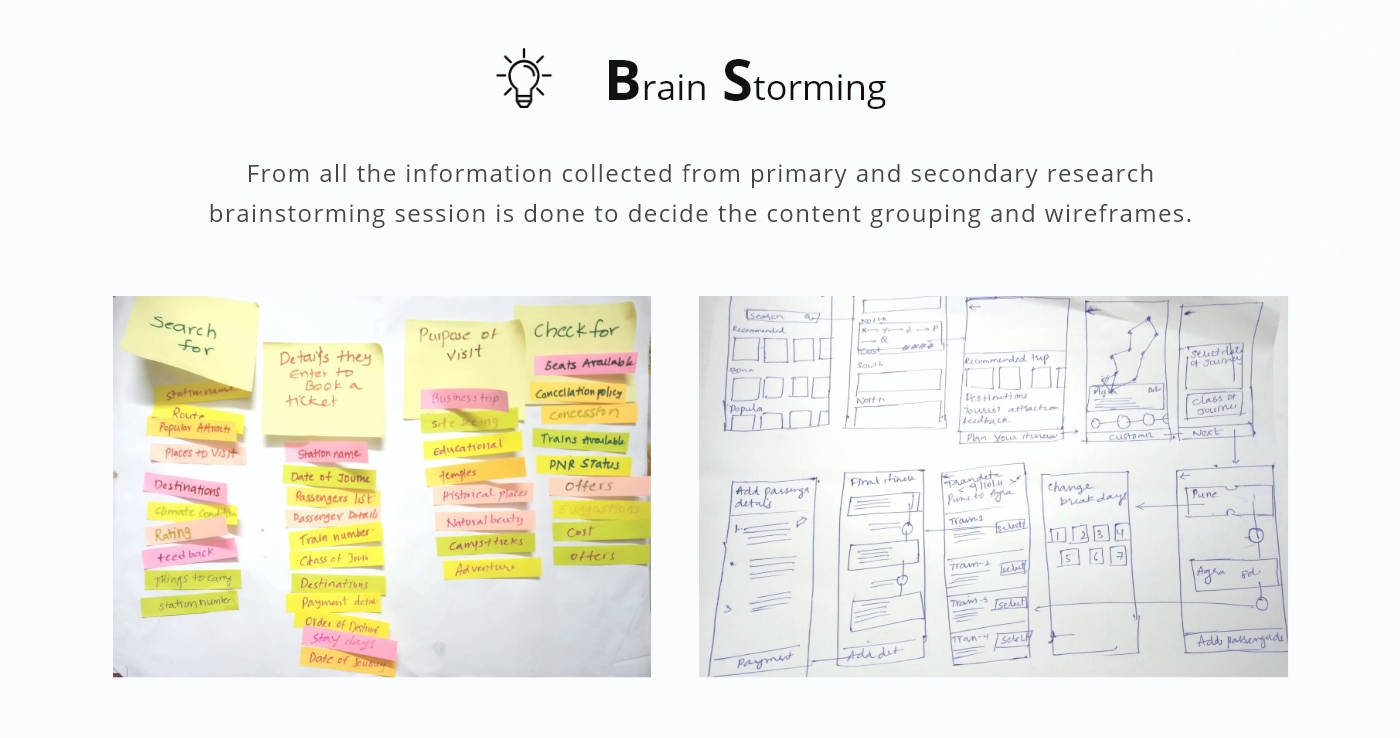 Brain Storming
From all the information collected from primary and secondary research
brainstorming session is done to decide the content grouping and wireframes.
Search
for
Station name
Route
Popular Attracts
Places to Visit
Destinations
Climate Conditio
Rating
feedback
Things to carry
station number
Details they
Enter to
Book a
ticket
Station name
Date of Journe
Passengers list
Passenger Details
Train number
Class of Journ
Destinations
Payment detai
Older of Destine
Stay days
Date of Journey
Purpose of
visit
Business trip
site seeing
Educational
temples
Historical places
Natural beuty
Camps+treks
Adventure
Check for
Seats Available
Cancellation policy
concession
Trains Available
PNR Status
offers
Suggestions
Cost
offers
Search
Recommended
Popula
North
South
North
Recommended trip
Destinations
Tourist attraction
feedback
Plan your itinera
customiz
Select date
of Journey
class of
Journey
Next
Add passengr
details
Payment
Final itinera
Add det
Pune to Agra
Train1
select
Train-2
select
Train-3
select
Train-4
select
Change
break days
1 2 3 4
5 6 7
Pune
Agra 8d.
Add passengede